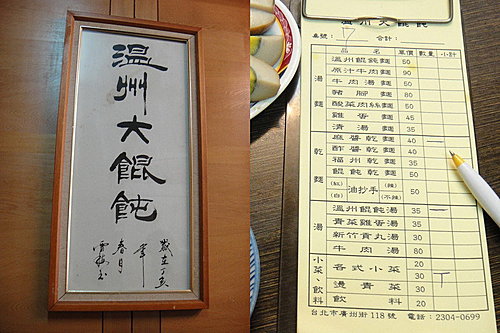 溫州大餛飩
歲在丁亥
年
春月
溫州大餛飩
桌號: 17 合計:
品名 單價 數量 小計
湯麵
溫州餛飩麵 50
原汁牛肉麵 90
牛肉湯麵 50
豬腳麵 80
酸菜肉絲麵 50
雞蛋麵 45
清湯麵 35
乾麵
麻醬乾麵 40 一
酢醬乾麵 40
福州乾麵 35
餛飩乾麵 50
油抄手 (辣) (不辣) 50
溫州餛飩湯 35 一
湯
青菜蛋湯 35
新竹貢丸湯 30
牛肉湯 80
小菜、飲料
各式小菜 20 30
燙青菜 30
飲料 20
台北市廣州街118號 電話:2304-0699